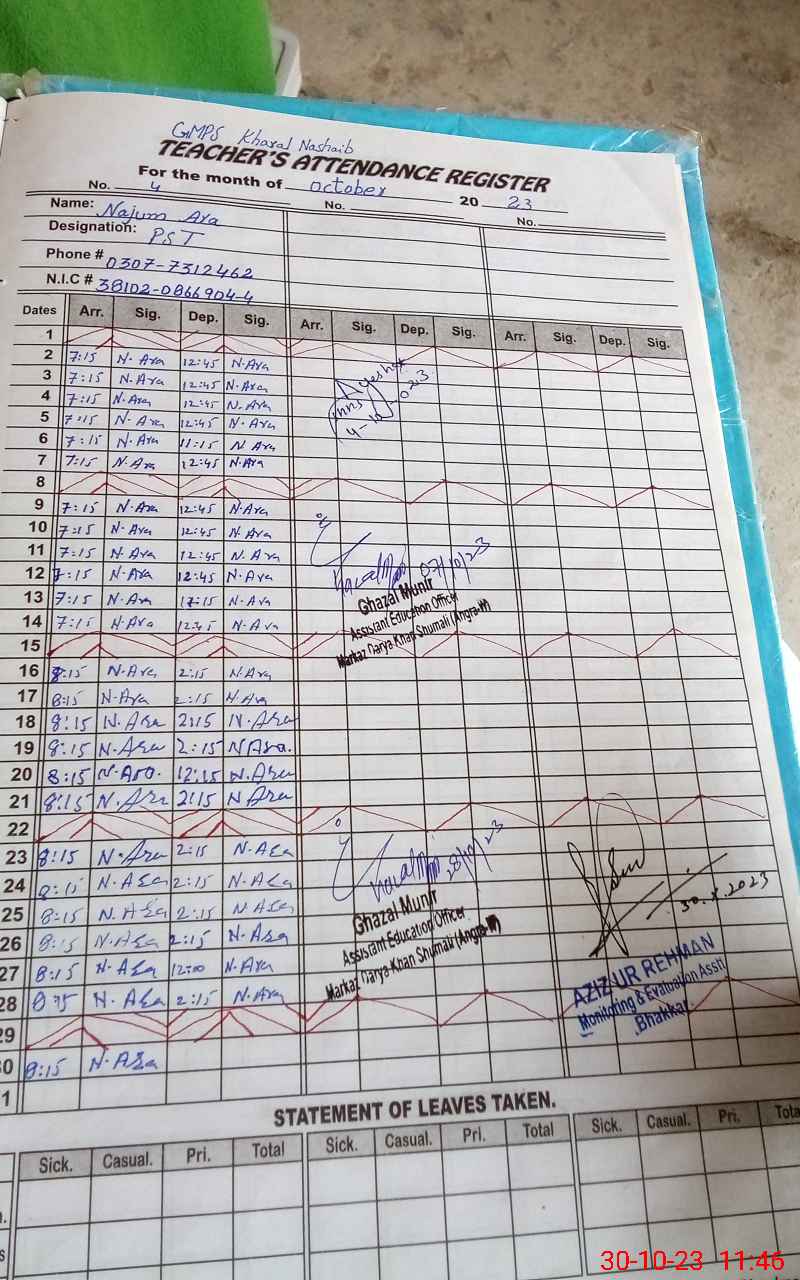 GMPS Kharal Nashaib
TEACHER'S ATTENDANCE REGISTER
For the month of October 20 23
No. 4 No. No.
Name: Najum Ara
Designation: PST
Phone # 0307-7312462
N.I.C # 38102-0866904-4
Dates Arr. Sig. Dep. Sig. Arr. Sig. Dep. Sig. Arr. Sig. Dep. Sig.
1
2 7:15 N-Ara 12:45 N.Ara
3 7:15 N.Ara 12:45 N.Ara
4 7:15 N.Ara 12:45 N.Ara
5 7:15 N.Ara 12:45 N.Ara
6 7:15 N.Ara 11:15 N.Ara
7 7:15 N.Ara 12:45 N.Ara
Ayesha
4-10-023
8
9 7:15 N.Ara 12:45 N.Ara
10 7:15 N.Ara 12:45 N.Ara
11 7:15 N.Ara 12:45 N.Ara
12 7:15 N.Ara 12:45 N.Ara
13 7:15 N.Ara N.Ara
14 7:15 N.Ara 12:45 N.Ara
07/10/23
Ghazal Munir
Assistant Education Officer
Markaz Darya Khan Shumali (Angra-W)
15
16 8:15 N.Ara 2:15 N.Ara
17 8:15 N.Ara 2:15 N.Ara
18 8:15 N.Ara 2:15 N.Ara
19 8:15 N.Ara 2:15 N.Ara.
20 8:15 N.Ara. 12:15 N.Ara
21 8:15 N.Ara 2:15 N.Ara
22
23 8:15 N.Ara 2:15 N.Ara
24 8:15 N.Ara 2:15 N.Ara
25 8:15 N.Ara 2:15 N.Ara
26 8:15 N.Ara 2:15 N.Ara
27 8:15 N.Ara 12:00 N.Ara
28 8:15 N.Ara 2:15 N.Ara
28/10/23
Ghazal Munir
Assistant Education Officer
Markaz Darya Khan Shumali (Angra-W)
30.X.2023
AZIZ UR REHMAN
Monitoring & Evaluation Asstt.
Bhakkar
29
0 8:15 N.Ara
1
STATEMENT OF LEAVES TAKEN.
Sick. Casual. Pri. Total Sick. Casual. Pri. Total Sick. Casual. Pri. Tota
30-10-23 11:46